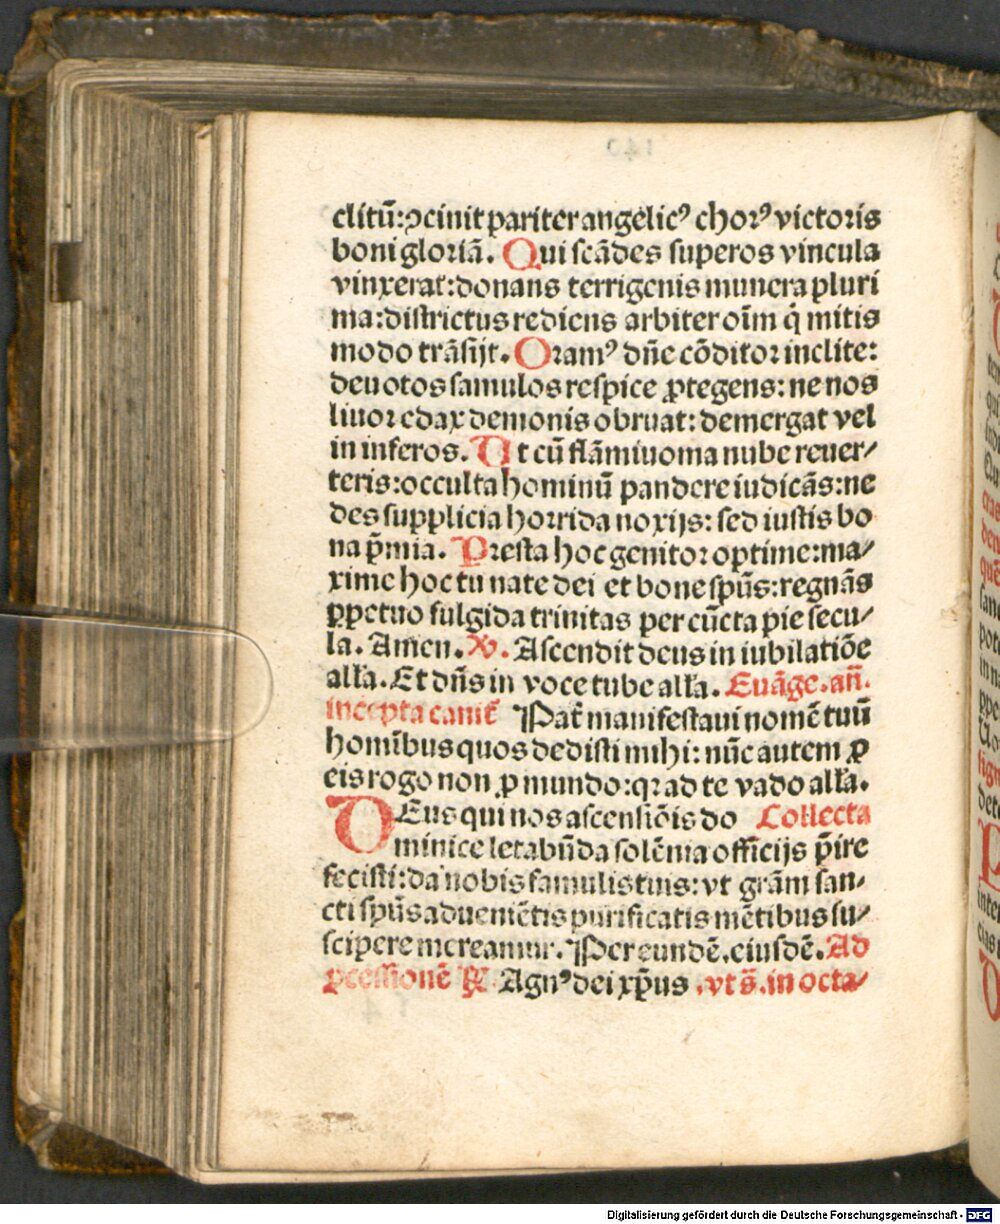 clitū:ↄcinit pariter angelicꝰ chorꝰ victoris
boni gloriā. Qui scādes superos vincula
vinxerat:donans terrigenis munera pluri
ma:districtus rediens arbiter oīm q̇ mitis
modo trāsijt. Oramꝰ dn̄e cōditor inclite:
deuotos famulos respice ꝓtegens: ne nos
liuor edax demonis obruat: demergat vel
in inferos. Ut cū flāmiuoma nube reuer/
teris:occulta hominū pandere iudicās:ne
des supplicia horrida noxijs: sed iustis bo
na p̄mia. Presta hoc genitor optime:ma/
xime hoc tu nate dei et bone spūs:regnās
ꝑpetuo fulgida trinitas per cūcta pie secu/
la. Amen. ℣. Ascendit deus in iubilatiōe
alla. Et dn̄s in voce tube alla. Euāge. an̄.
incepta canit̄ Pat̄ manifestaui nomē tuū
hominibus quos dedisti mihi: nūc autem ꝓ
eis rogo non ꝓ mundo:qꝛ ad te vado alla.
DEus qui nos ascensiōis do Collecta
minice letabūda solēnia officijs p̄ire
fecisti:da nobis famulis tuis: vt grām san-
cti spūs adueniētis purificatis mētibus su/
scipere mereamur. Per eundē. eiusdē. Ad
ꝓcessionē ℟ Agnꝰ dei xp̄us .vt s̄. in octa/